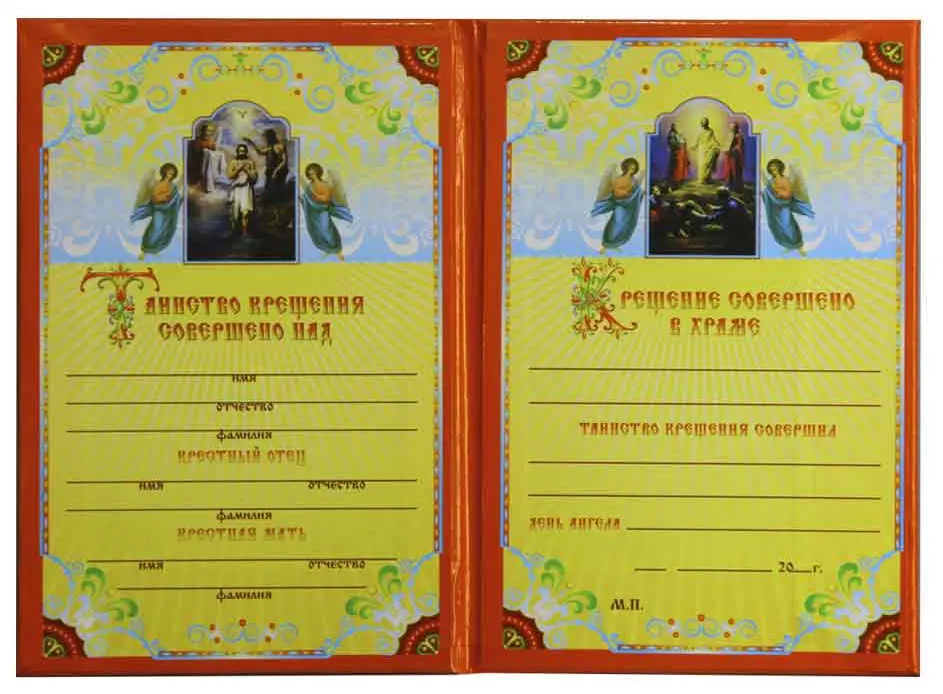 Таинство Крещения
совершено над
имя
отчество
фамилия
Крестный отец
имя отчество
фамилия
Крестная мать
имя отчество
фамилия
Крещение совершено
в храме
Таинство Крещения совершил
День Ангела
20__г.
М.П.